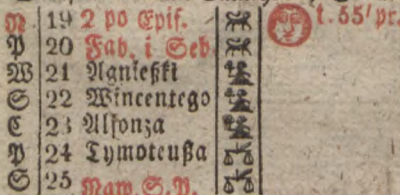 N 19 2 po Epif. 1. 55' pr.
P 20 Fab. i Seb.
W 21 Agnießki
S 22 Wincentego
C 23 Alfonza
P 24 Tymoteußa
S 25 Naw. S. P.